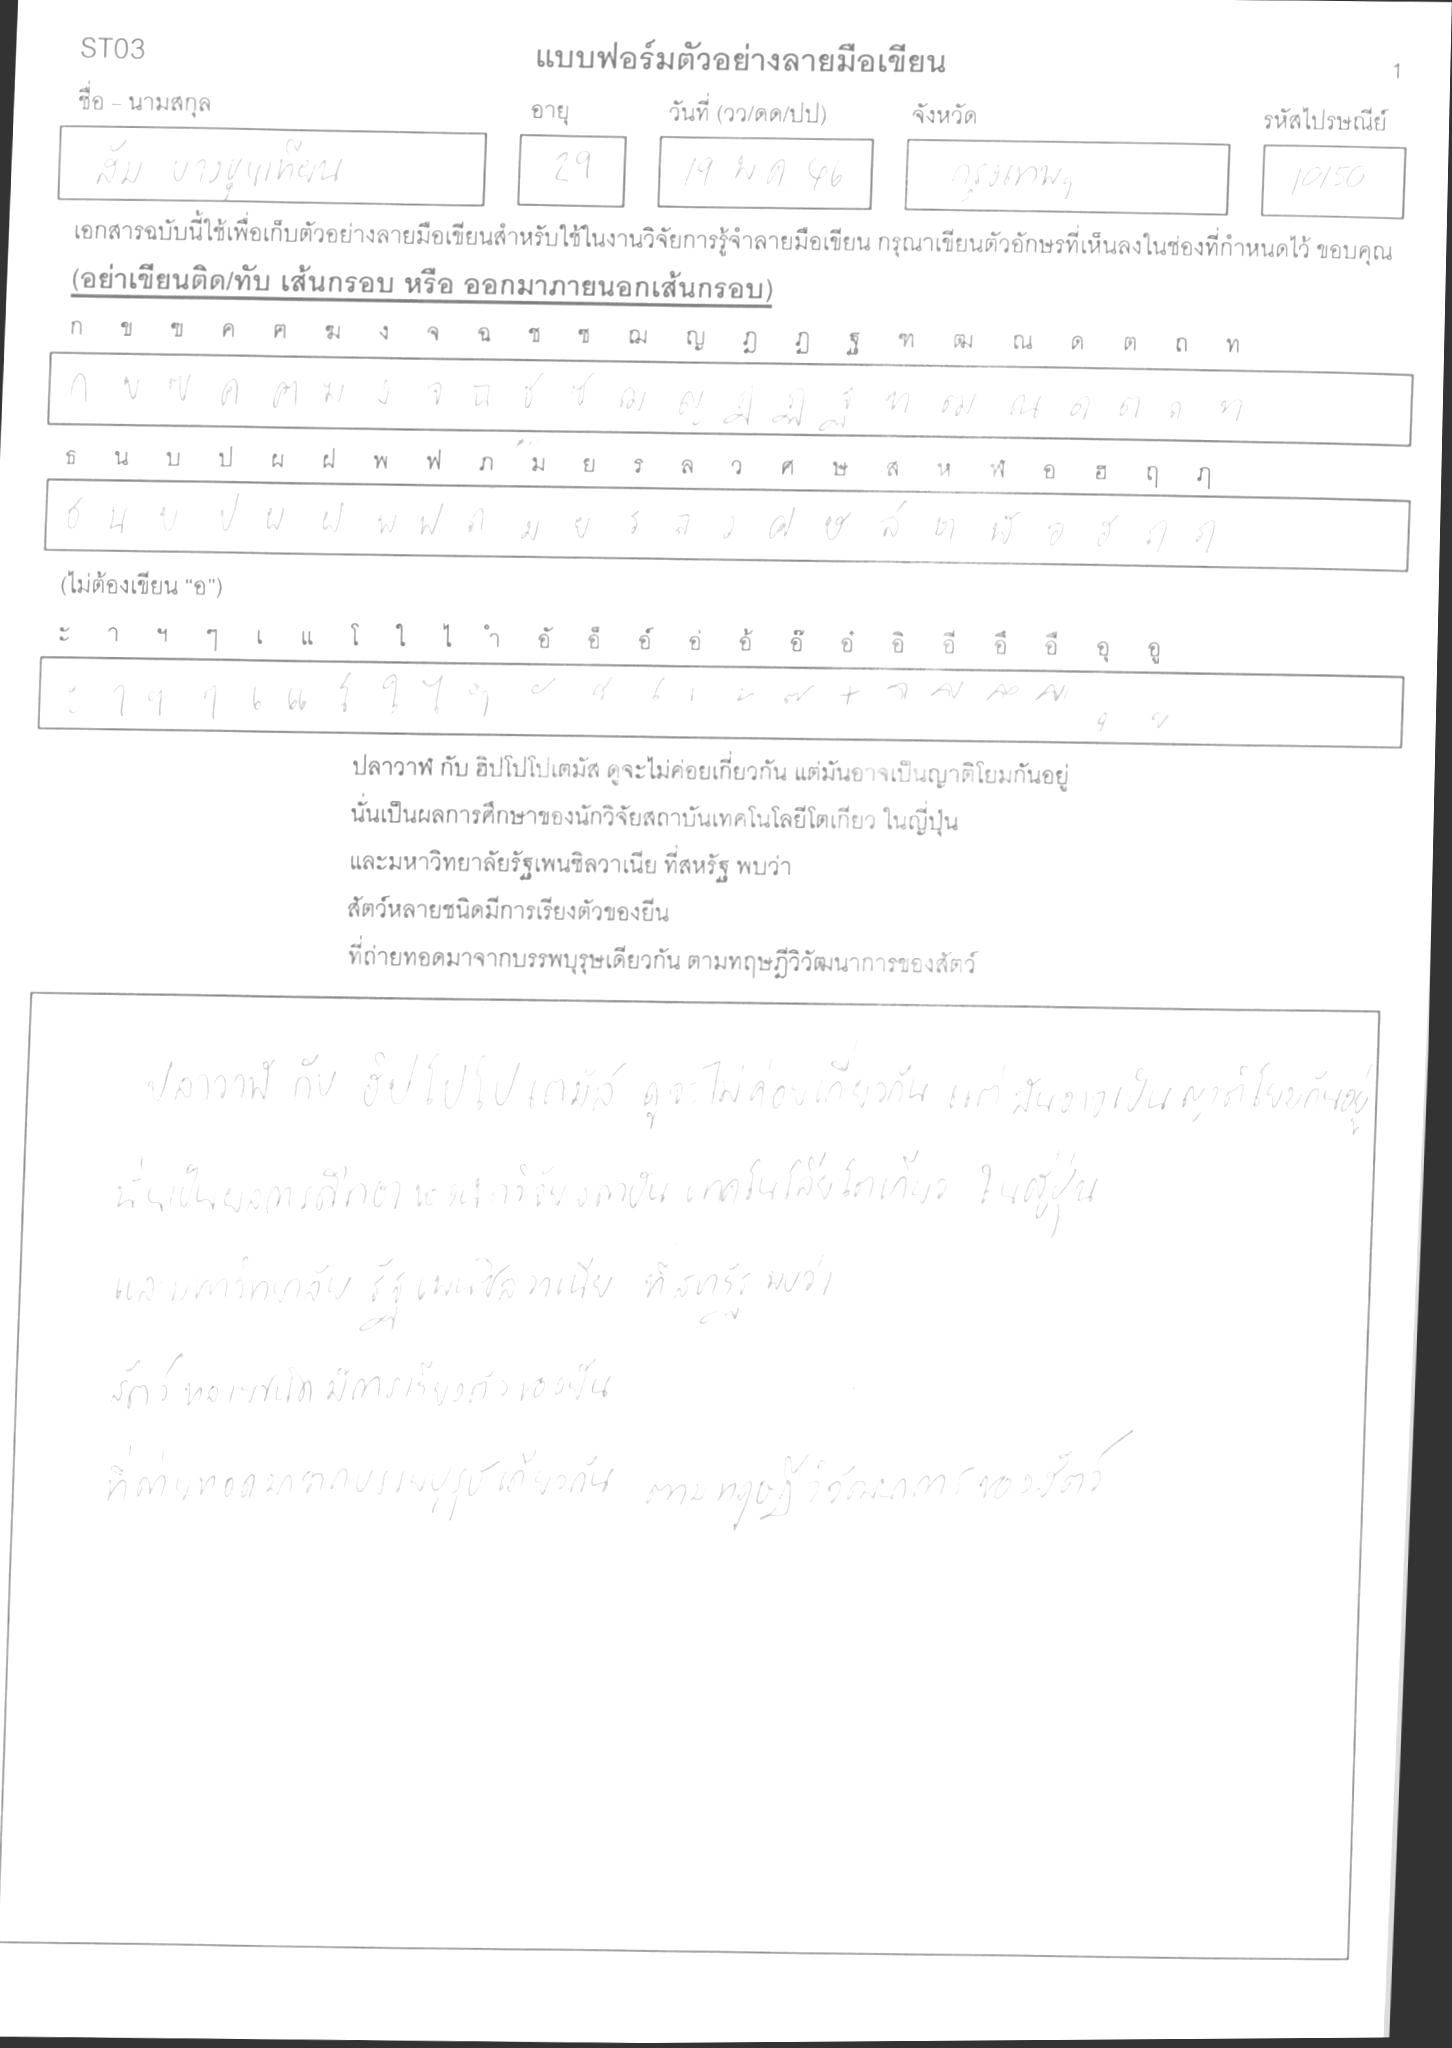 ST03
แบบฟอร์มตัวอย่างลายมือเขียน
1
ชื่อ – นามสกุล อายุ วันที่ (วว/ดด/ปป) จังหวัด รหัสไปรษณีย์
ส้ม บางขุนเทียน 29 19 พ ค 46 กรุงเทพฯ 10150
เอกสารฉบับนี้ใช้เพื่อเก็บตัวอย่างลายมือเขียนสำหรับใช้ในงานวิจัยการรู้จำลายมือเขียน กรุณาเขียนตัวอักษรที่เห็นลงในช่องที่กำหนดไว้ ขอบคุณ
(อย่าเขียนติด/ทับ เส้นกรอบ หรือ ออกมาภายนอกเส้นกรอบ)
ก ข ฃ ค ฅ ฆ ง จ ฉ ช ซ ฌ ญ ฎ ฏ ฐ ฑ ฒ ณ ด ต ถ ท
ก ข ฃ ค ฅ ฆ ง จ ฉ ช ซ ฌ ญ ฎ ฏ ฐ ฑ ฒ ณ ด ต ถ ท
ธ น บ ป ผ ฝ พ ฟ ภ ม ย ร ล ว ศ ษ ส ห ฬ อ ฮ ฤ ฦ
ธ น บ ป ผ ฝ พ ฟ ภ ม ย ร ล ว ศ ษ ส ห ฬ อ ฮ ฤ ฦ
(ไม่ต้องเขียน “อ”)
ะ า ฯ ๆ เ แ โ ใ ไ ำ อั อ็ อ์ อ่ อ้ อ๊ อ๋ อิ อี อึ อื อุ อู
ะ า ฯ ๆ เ แ โ ใ ไ ำ ั ็ ์ ่ ้ ๊ ๋ ิ ี ึ ื ุ ู
ปลาวาฬ กับ ฮิปโปโปเตมัส ดูจะไม่ค่อยเกี่ยวกัน แต่มันอาจเป็นญาติโยมกันอยู่
นั่นเป็นผลการศึกษาของนักวิจัยสถาบันเทคโนโลยีโตเกียว ในญี่ปุ่น
และมหาวิทยาลัยรัฐเพนซิลวาเนีย ที่สหรัฐ พบว่า
สัตว์หลายชนิดมีการเรียงตัวของยีน
ที่ถ่ายทอดมาจากบรรพบุรุษเดียวกัน ตามทฤษฎีวิวัฒนาการของสัตว์
ปลาวาฬ กับ ฮิปโปโปเตมัส ดูจะไม่ค่อยเกี่ยวกัน แต่มันอาจเป็นญาติโยมกันอยู่
นั่นเป็นผลการศึกษาของนักวิจัยสถาบัน เทคโนโลยีโตเกียว ในญี่ปุ่น
และมหาวิทยาลัย รัฐเพนซิลวาเนีย ที่สหรัฐ พบว่า
สัตว์ หลายชนิด มีการเรียงตัวของยีน
ที่ถ่ายทอดมาจากบรรพบุรุษเดียวกัน ตามทฤษฎีวิวัฒนาการของสัตว์